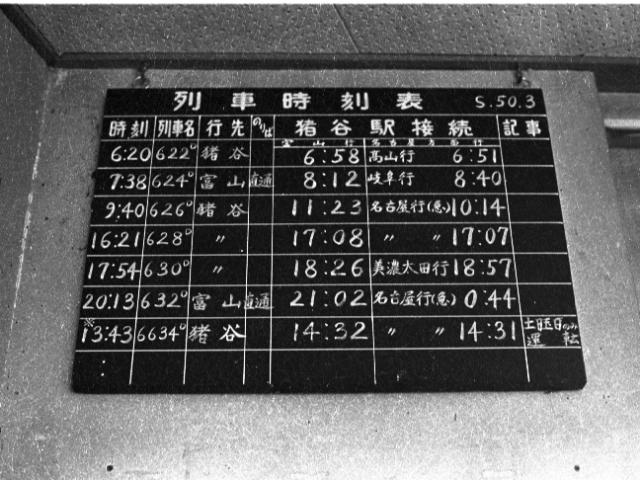 列車時刻表 S.50.3
時刻 列車名 行先 のりば 猪谷駅接続 記事
富山行 名古屋方面行
6:20 622D 猪谷 6:58 高山行 6:51
7:38 624D 富山 直通 8:12 岐阜行 8:40
9:40 626D 猪谷 11:23 名古屋行(急) 10:14
16:21 628D 〃 17:08 〃 〃 17:07
17:54 630D 〃 18:26 美濃太田行 18:57
20:13 632D 富山 直通 21:02 名古屋行(急) 0:44
※13:43 6634D 猪谷 14:32 〃 〃 14:31 土日のみ運転